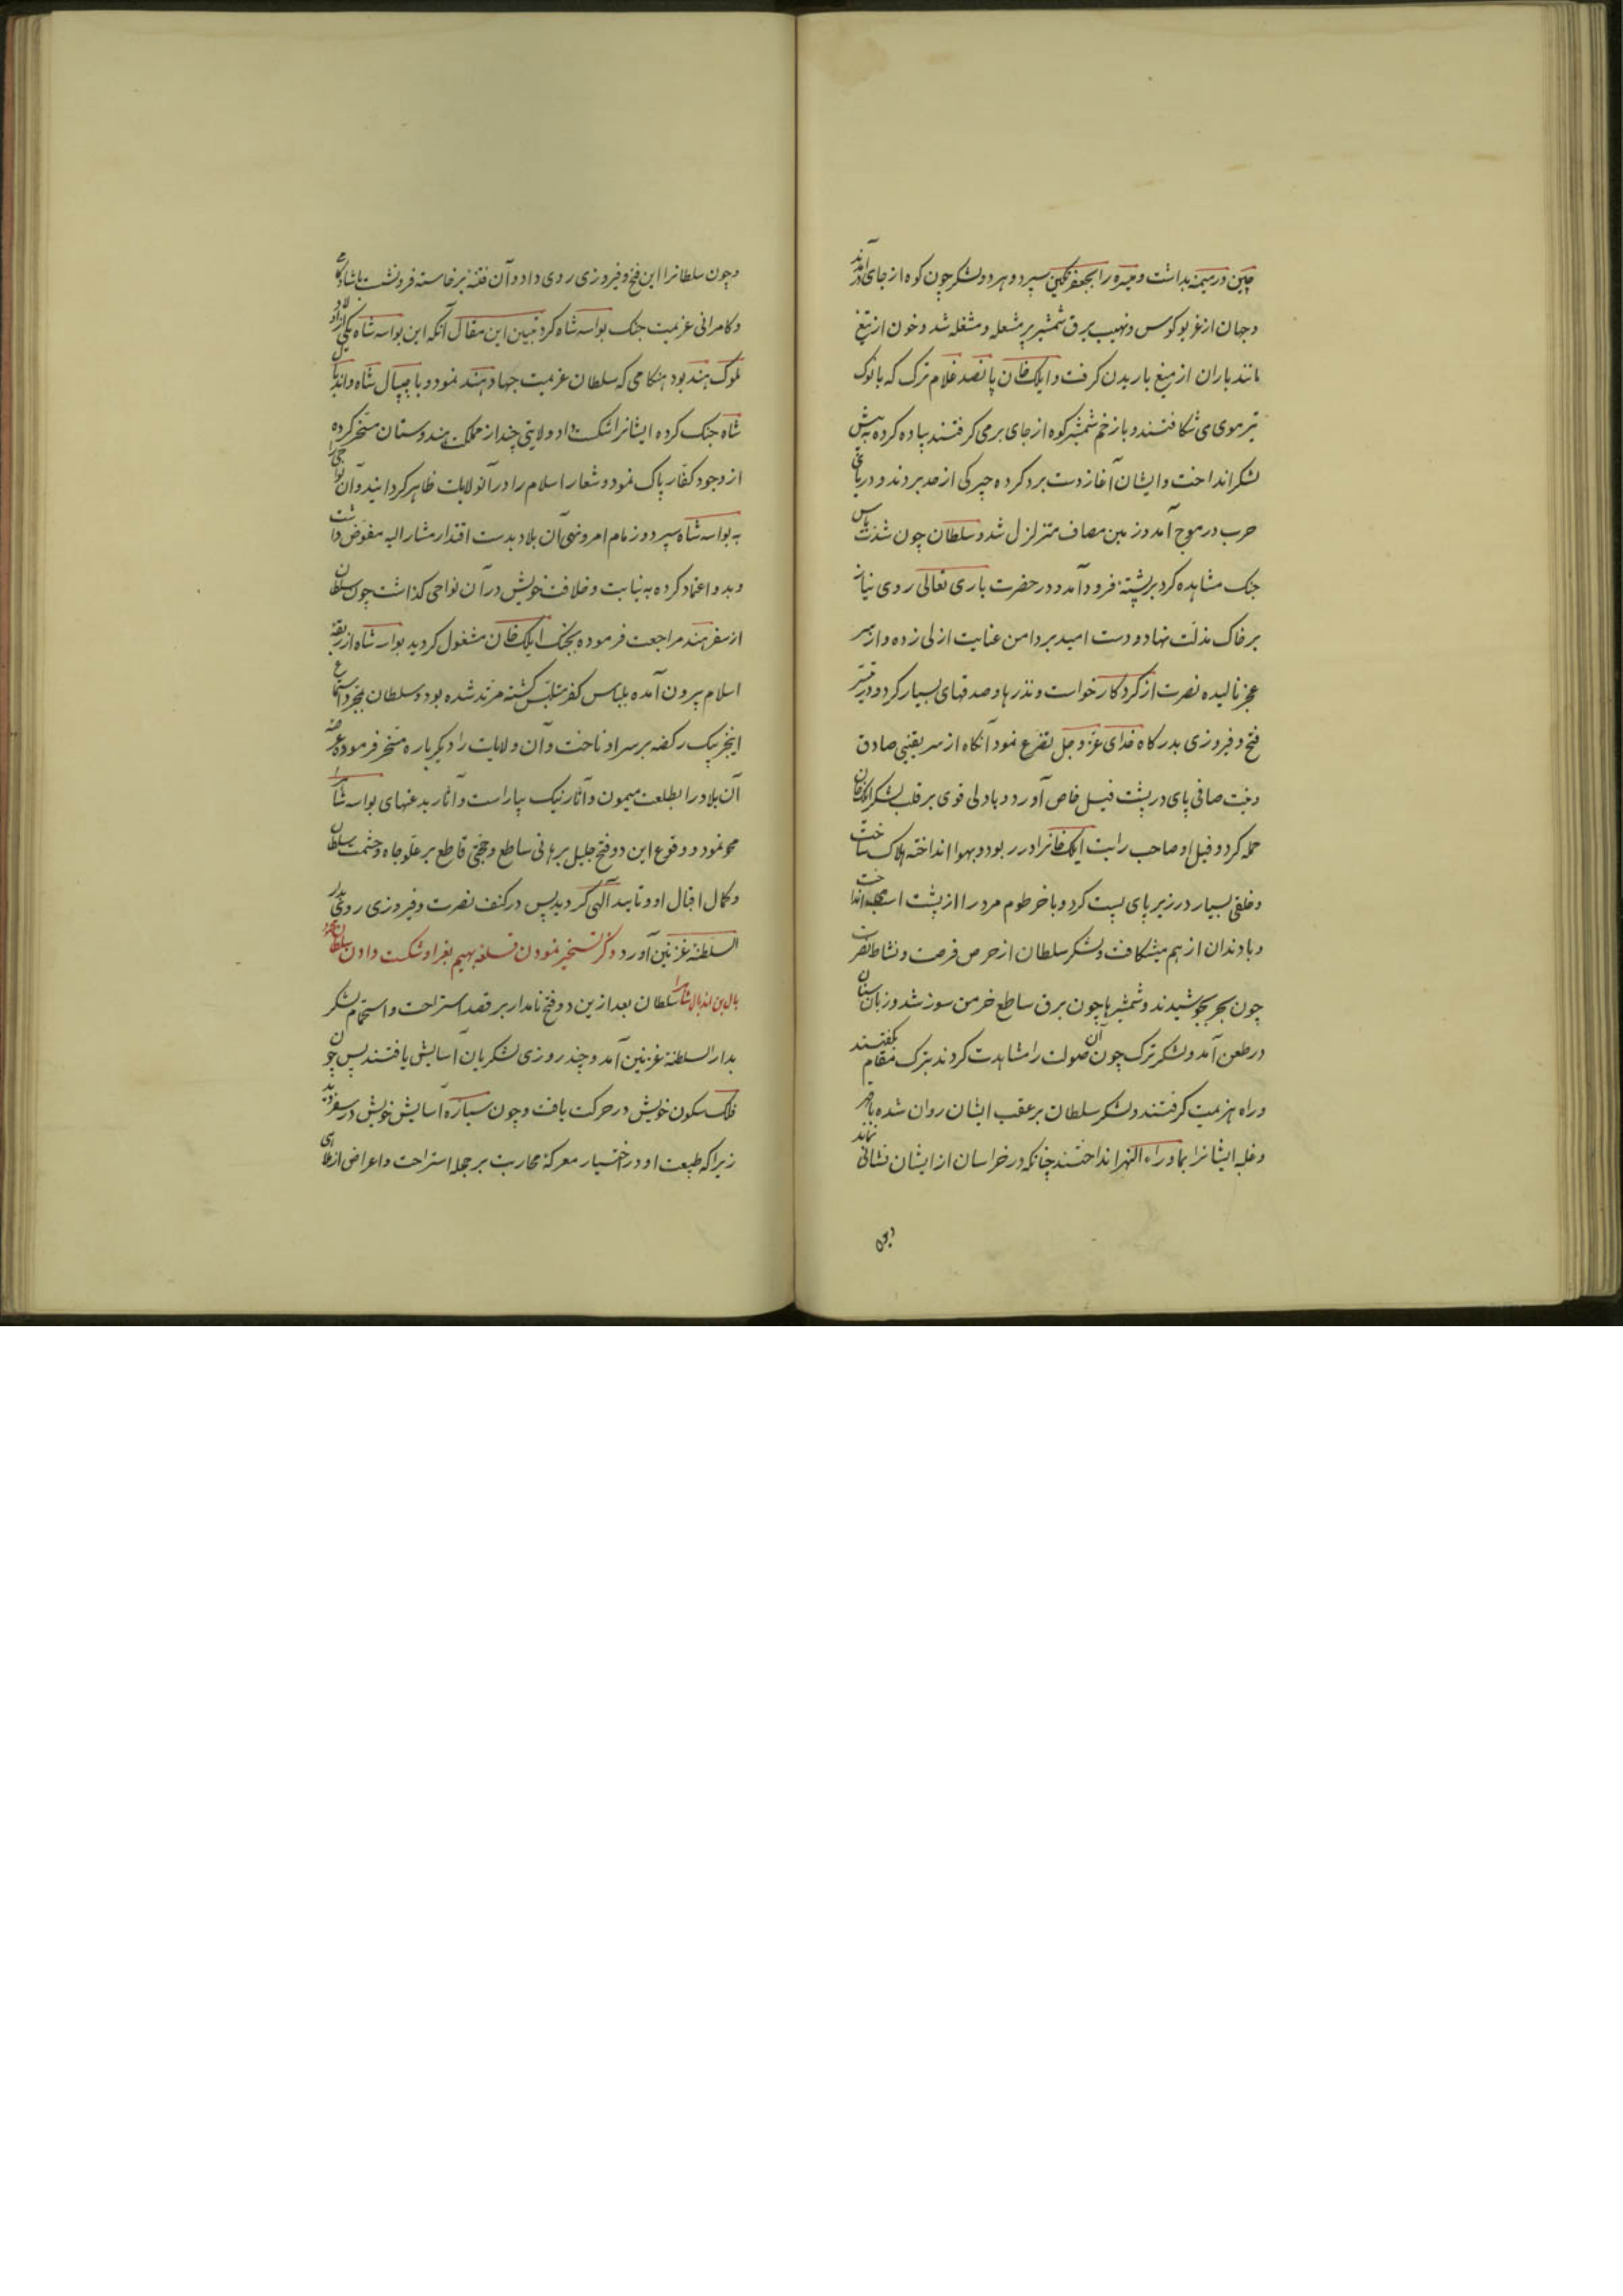 چین در میمنه بداشت و میسره را بجعفر تکین سپرد و هر دو لشکر چون کوه از جای درآمدند
و جهان از غریو کوس و نهیب برق شمشیر پر مشعله و مشغله شد و خون از تیغ
مانند باران از میغ باریدن کرفت و ایلک خان پانصد غلام ترک که بانوک
تیر موی می شکافتند و بازخم شمشیر کوه از جای برمی کرفتند پیاده کرده به پیش
لشکر انداخت و ایشان آغاز دست برد کرده چیرکی از حد بردند و دریای
حرب در موج آمد و زمین مصاف متزلزل شد و سلطان چون شدت باس
جنک مشاهده کرد بر پشته فرود آمد و در حضرت باری تعالی روی نیاز
بر خاک مذلت نهاد و دست امید بر دامن عنایت ازلی زده و از سر
عجز نالیده نصرت از کردکار خواست و نذرها و صدقهای بسیار کرد و در تیسر
فتح و فیروزی بدرکاه خدای عز و جل تضرع نمود آنکاه از سر یقینی صادق
و نیت صافی پای در پشت فیل خاص آورد و با دلی قوی بر قلب لشکر ایلک خان
حمله کرد و فیل او صاحب رایت ایلک خانرا در ربود و بهوا انداخته هلاک ساخت
و خلقی بسیار در زیر پای پست کرد و با خرطوم مرد را از پشت اسب می انداخت
و با دندان از هم میشکافت و لشکر سلطان از حرص فرصت و نشاط نصرت
چون بحر بجوشیدند و شمشیرها چون برق ساطع خرمن سوز شد و زبان سنان
در طعن آمد و لشکر ترک چون آن صولت را مشاهدت کردند بترک مقام بکفتند
و راه هزیمت کرفتند و لشکر سلطان بر عقب ایشان روان شده
و غلبه ایشانرا بماوراء النهر انداختند چنانکه در خراسان از ایشان نشانی نماند
و چون
و چون سلطانرا این فتح و فیروزی روی داد و آن فتنه برخاسته فرونشست با شادکامی
و کامرانی عزیمت جنک بواسه شاه کرد تبیین این مقال آنکه این بواسه شاه یکی از اولاد
ملوک هند بود هنکامی که سلطان عزیمت جهاد هند نمود و با جیپال شاه و اندپال
شاه جنک کرده ایشانرا شکست داد و ولایتی چند از مملکت هندوستان مسخر کرده
از وجود کفار پاک نمود و شعار اسلام را در آنولایات ظاهر کردانید و آن نواحی را
به بواسه شاه سپرد و زمام امر و نهی آن بلاد بدست اقتدار مشار الیه مفوض داشت
و بدو اعتماد کرده به نیابت و خلافت خویش در آن نواحی کذاشت چون سلطان
از سفر هند مراجعت فرموده بجنک ایلک خان مشغول کردید بواسه شاه از ربقه
اسلام بیرون آمده بلباس کفر متلبس کشته مرتد شده بود و سلطان بمجرد استماع
اینخبر بیک رکضه بر سر او تاخت و آن ولایات را دیکرباره مسخر فرموده عرصه
آن بلاد را بطلعت میمون و آثار نیک بیاراست و آثار بدعتهای بواسه شاه را
محو نمود و وقوع این دو فتح جلیل برهانی ساطع و حجتی قاطع بر علو جاه و حشمت سلطان
و کمال اقبال او و تایید الهی کردید پس در کنف نصرت و فیروزی روی بدار
السلطنه غزنین آورد ذکر تسخیر نمودن قلعه بهیم بغرا و شکست دادن سلطان محمود
بال بن اندبال شاه را سلطان بعد ازین دو فتح نامدار بر قصد استراحت و استجمام لشکر
بدار السلطنه غزنین آمد و چند روزی لشکریان آسایش یافتند پس چون
فلک سکون خویش در حرکت یافت و چون سیاره آسایش خویش در سفر دید
زیراکه طبیعت او در اختیار معرکه محاربت بر حجله استراحت و اعراض از ملاهی